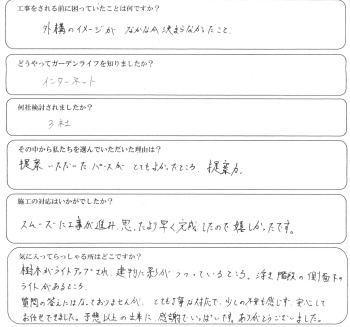 工事をされる前に困っていたことは何ですか?
外構のイメージが なかなか決まらなかったこと
どうやってガーデンライフを知りましたか?
インターネット
何社検討されましたか?
3社
その中から私たちを選んでいただいた理由は?
提案いただいたパースが とてもよかったところ、提案力、
施工の対応はいかがでしたか?
スムーズに工事が進み、思ったより早く完成したので嬉しかったです。
気に入ってらっしゃる所はどこですか?
樹木がライトアップされ、建物に影がうつっているところ。浮き階段の側面下の
ライトがあるところ。
質問の答えにはなっておりませんが、とても丁寧な対応で、少しの不安も感じず安心して
お任せできました。予想以上の出来に、感謝でいっぱいです。ありがとうございました。